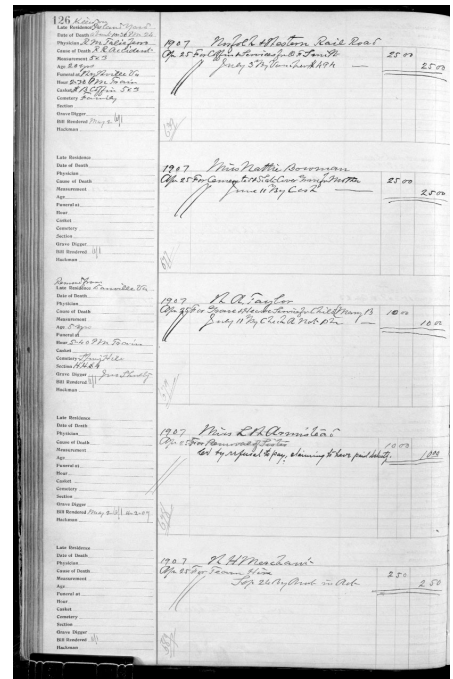 126
Late Residence Island Yard
Date of Death
Physician R. M. Taliaferro
Cause of Death R R Accident
Measurement 5x3
Age 20 yrs
Funeral at
Hour 2-30 P.M. Train
Casket Coffin 5x3
Cemetery Family
Section
Grave Digger
Bill Rendered May 2
Hackman
1907 Norfolk & Western Rail Road
Apr 25 For Coffin & Services for 25 00
July 3 By Voucher 25 00
Late Residence
Date of Death
Physician
Cause of Death
Measurement
Age
Funeral at
Hour
Casket
Cemetery
Section
Grave Digger
Bill Rendered
Hackman
1907 Miss Nattie Bowman
Apr 25 For Cement Mother 25 00
June 11 By Cash 25 00
Removed from
Late Residence Danville Va
Date of Death
Physician
Cause of Death
Measurement
Age 5 yrs
Funeral at
Hour 5-40 P.M. Train
Casket
Cemetery Spring Hill
Section
Grave Digger
Bill Rendered
Hackman
1907 R. A. Taylor
Apr 25 For Grave & Hearse Service for Child Mary B 10 00
July 11 By Check 10 00
Late Residence
Date of Death
Physician
Cause of Death
Measurement
Age
Funeral at
Hour
Casket
Cemetery
Section
Grave Digger
Bill Rendered May 2
Hackman
1907 Miss L. A. Armistead
Apr 25 For Removal of Sister 10 00
by refusal to pay, claiming to have paid 10 00
Late Residence
Date of Death
Physician
Cause of Death
Measurement
Age
Funeral at
Hour
Casket
Cemetery
Section
Grave Digger
Bill Rendered
Hackman
1907 R H Merchant
Apr 25 For Team Hire 2 50
Sep 26 By 2 50